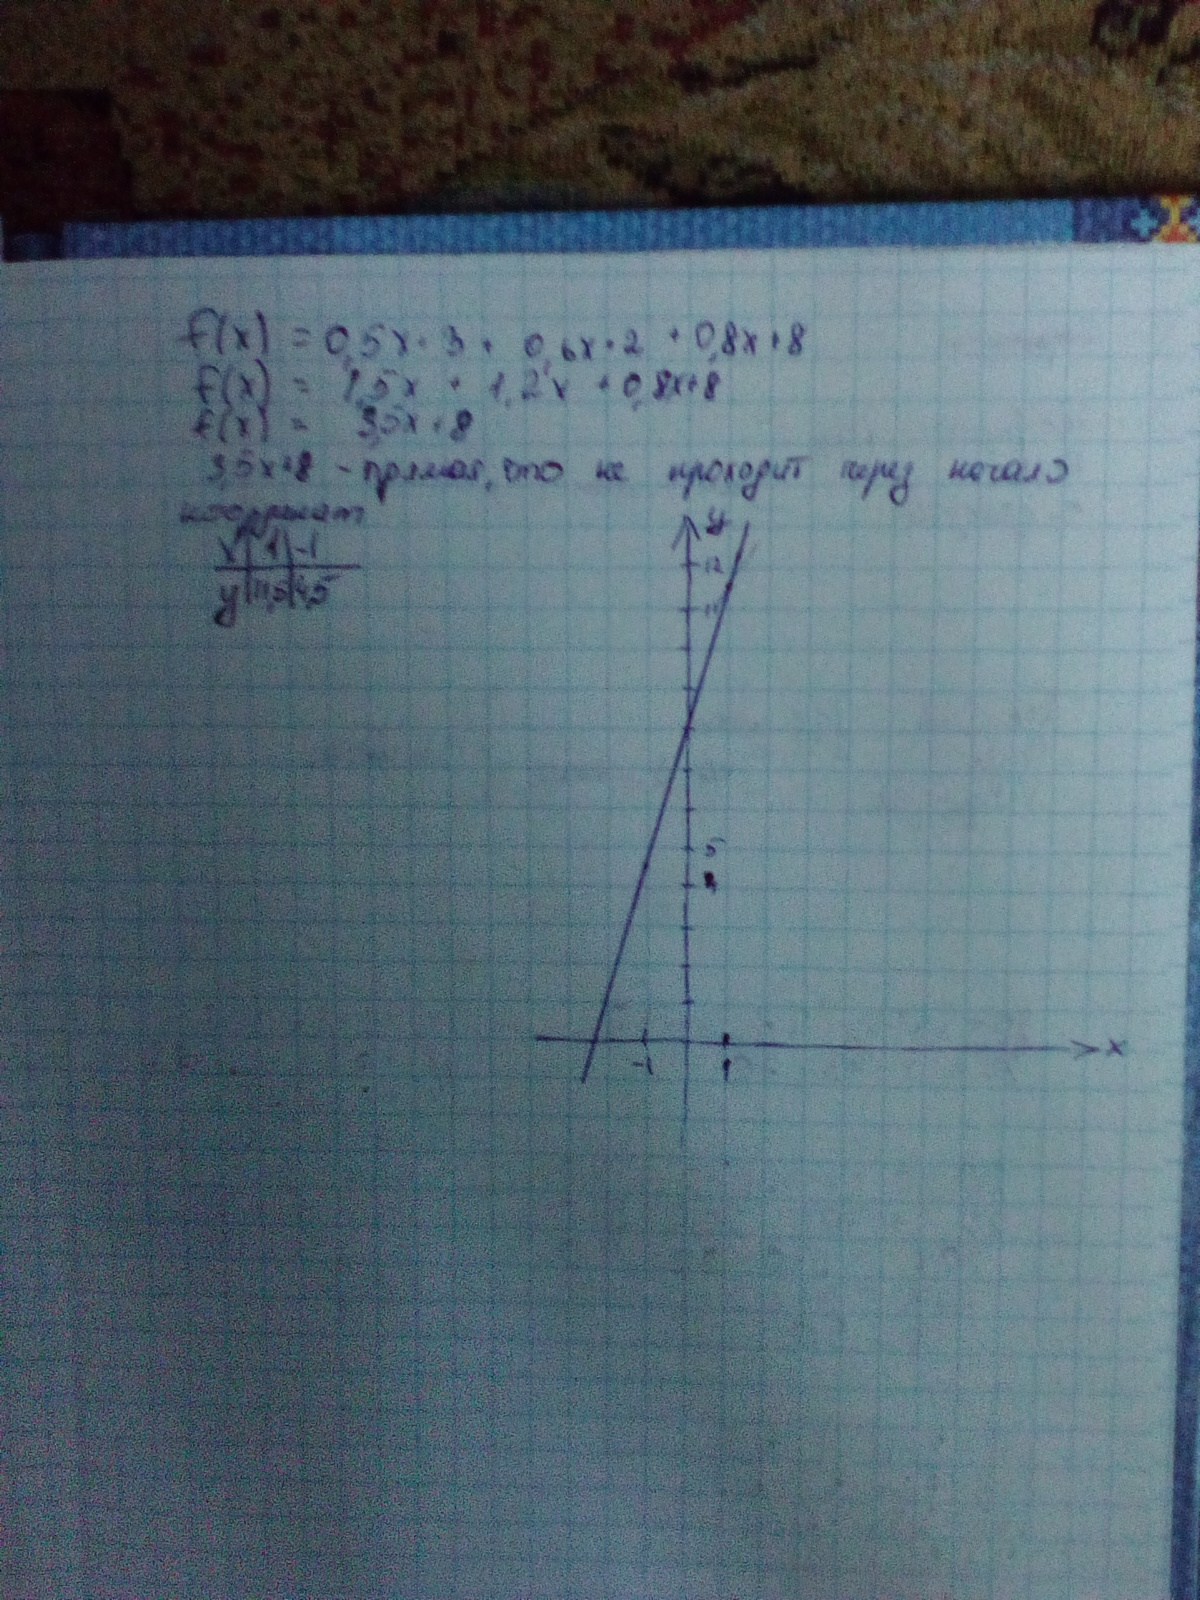 f(x) = 0,5x · 3 + 0,6x · 2 + 0,8x + 8
f(x) = 1,5x + 1,2x + 0,8x+8
f(x) = 3,5x+8
3,5x+8 - прямая, что не проходит через начало
координат
x 1 -1
y 11,5 4,5
y
12
11
5
4
-1 1 x